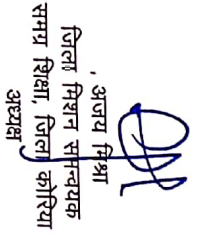 , अजय मिश्रा
जिला मिशन समन्वयक
समग्र शिक्षा, जिला कोरिया
अध्यक्ष